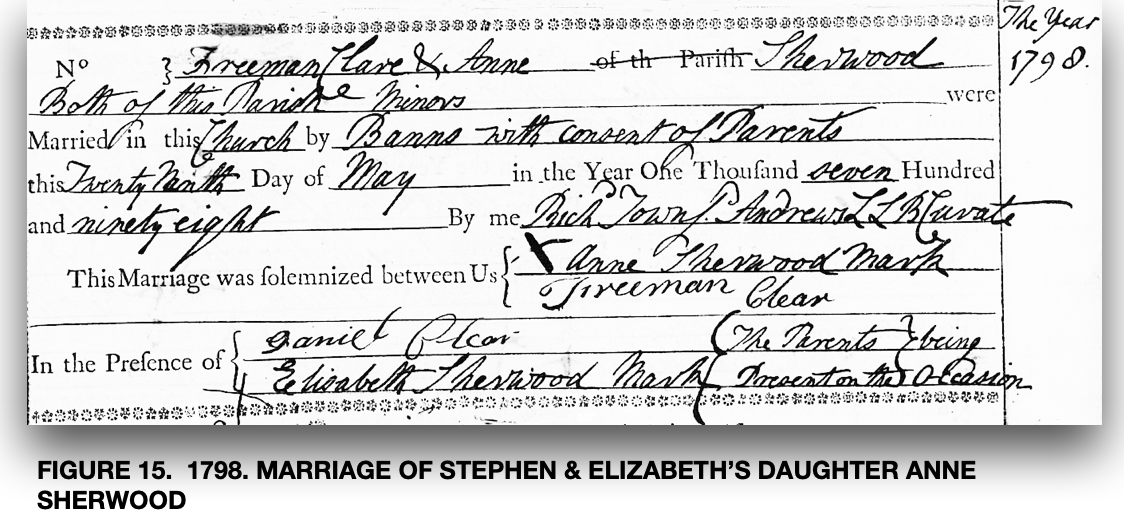 The Year
1798.
No } Freeman Clare & Anne of th Parish Sherwood
Both of this Parishe Minors were
Married in this Church by Banns with consent of Parents
this Twenty Ninth Day of May in the Year One Thousand seven Hundred
and ninety eight By me Richd Towns. Andrews LLB Curate
This Marriage was solemnized between Us { X Anne Sherwood Mark
Freeman Clear
In the Presence of { Daniel Clear (The Parents } being
Elisabeth Sherwood Mark ( Present on the } Occasion
FIGURE 15. 1798. MARRIAGE OF STEPHEN & ELIZABETH’S DAUGHTER ANNE
SHERWOOD